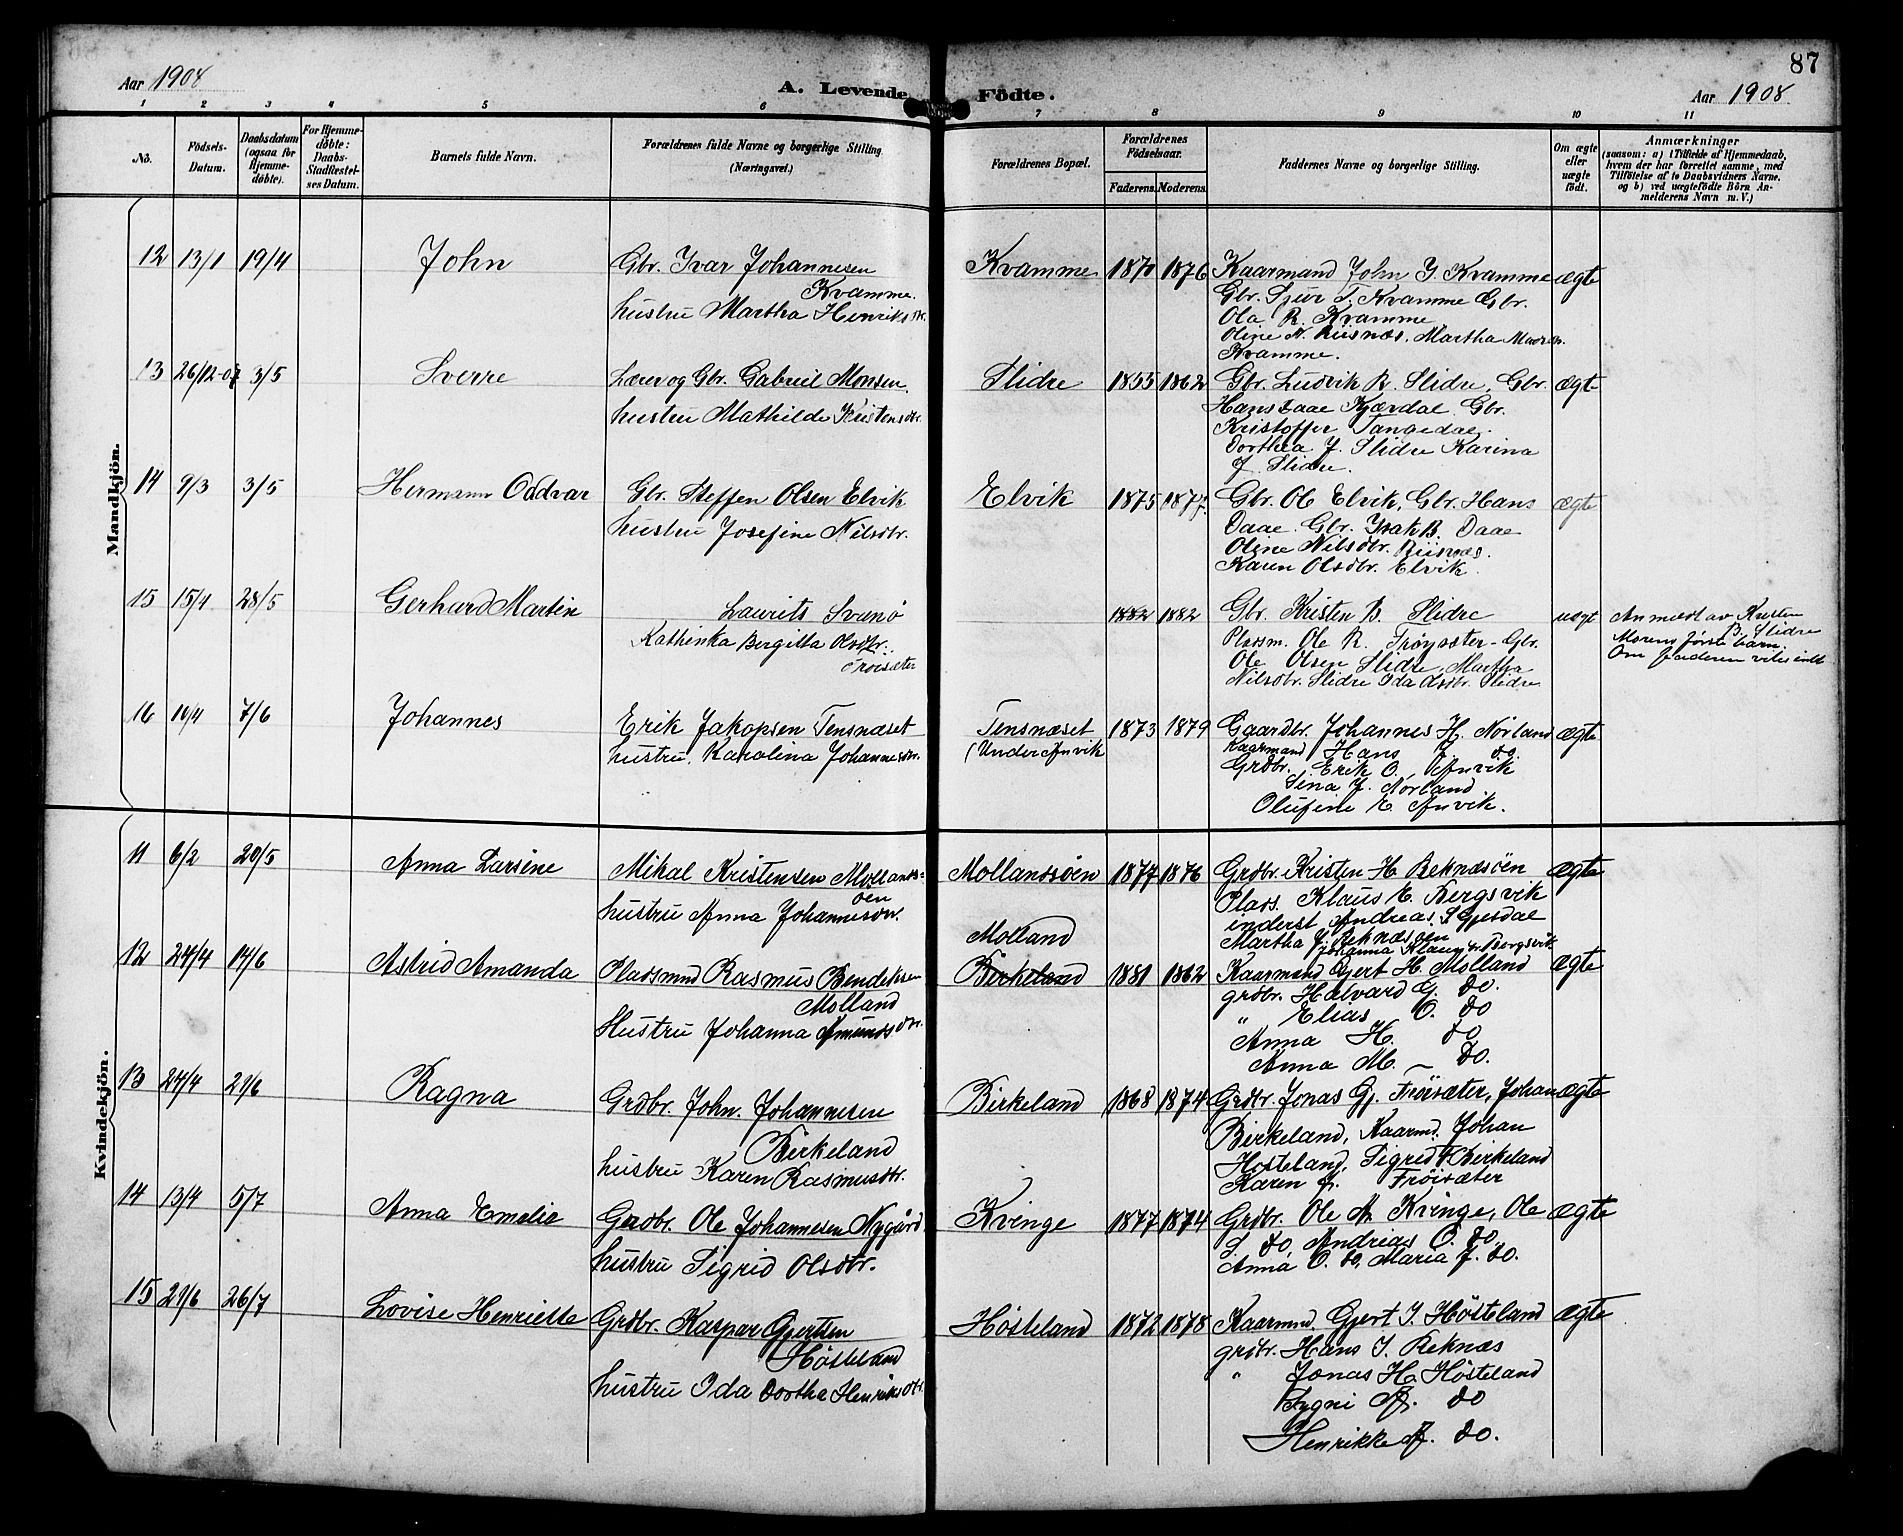 87
Aar 1908
A. Levende
Födte.
Aar 1908
1 2 3 4 5 6 7 8 9 10 11
No.
Födsels-
Datum.
Daabsdatum
(ogsaa for
Hjemme-
døbte).
For Hjemme-
døbte:
Daabs-
Stadfæstel-
ses Datum.
Barnets fulde Navn.
Forældrenes fulde Navne og borgerlige Stilling
(Næringsvei.)
Forældrenes Bopæl.
Forældrenes
Födselsaar.
Faderens. Moderens.
Faddernes Navne og borgerlige Stilling.
Om ægte
eller
uægte
födt.
Anmærkninger
(saasom: a) i Tilfælde af Hjemmedaab,
hvem der har forrettet samme, med
Tilföielse af to Daabsvidners Navne.
og b) ved uægtefödte Börn An-
melderens Navn m. V.)
Mandkjön.
12 13/1 19/4 John
Gbr. Ivar Johannesen
Kvamme.
hustru Martha Henriksdr.
Kvamme 1870 1876
Kaarmand John I. Kvamme ægte
Gbr. Sjur T. Kvamme Gbr.
Ola R. Kvamme
Oline N. Riisnæs, Martha Madsen
Kvamme.
13 26/12-07 3/5 Sverre
Lærer og Gbr. Gabriel Monsen
hustru Mathilde Kristensdtr.
Slidre 1855 1862
Gbr. Ludvik B. Slidre, Gbr. ægte
Hans Daae Kjærdal. Gbr.
Kristoffer Tangedal.
Dorthea J. Slidre Karina
J. Slidre.
14 9/3 3/5 Hermann Oddvar
Gbr. Steffen Olsen Elvik
hustru Josefine Nilsdtr.
Elvik 1875 1877.
Gbr. Ole Elvik, Gbr. Hans ægte
Daae. Gbr. Isak B. Daae
Oline Nilsdtr. Riisnæs.
Karen Olsdtr. Elvik.
15 15/4 28/5 Gerhard Martin
Laurits Svanö
Kathinka Bergitta Olsdtr.
Tröisæter
1882 1882
Gbr. Kristen B. Slidre uægt
Plassm. Ole R. Tröysæter - Gbr.
Ole Olsen Slidre, Martha
Nilsdtr. Slidre Ida Olsdtr. Slidre
Anmeldt av Kristen
B. Slidre
Morens første barn.
Om faderen vites intet
16 10/4 7/6 Johannes
Erik Jakopsen Tensnæset
hustru, Karolina Johannesdtr.
Tensnæset
(Under Anvik
1873 1879
Gaardbr. Johannes H. Nörland ægte
Kaarmand Hans J. do.
Grdbr. Erik O. Anvik
Sina J. Norland
Olufine E. Anvik.
Kvindekjön.
11 6/2 20/5 Anna Larsine
Mikal Kristensen Mollands-
öen
hustru Anna Johannesdtr.
Mollandsöen 1877 1876
Grdbr. Kristen H. Reknæsöen ægte
Plass. Klaus E. Bergsvik
inderst Andreas S. Gjesdal
Martha J. Reknæsöen
Johanna Klausdtr. Bergsvik
12 24/4 14/6 Astrid Amanda
Pladsmnd Rasmus Bendiksen
Molland
Hustru Johanna Amundsdtr.
Molland
Birkeland 1881 1862
Kaarmand Gjert H. Molland ægte
grdbr. Halvard G. do.
„ Elias O. do
Anna H. do
Anna M. — do.
13 24/4 21/6 Ragna
Grdbr. John. Johannesen
Birkeland
hustru Karen Rasmusdtr.
Birkeland 1868 1874
Grdbr. Jonas Gj. Fröisæter, Johan ægte
Birkeland, Kaarmd. Johan
Hosteland, Sigrid K. Birkeland
Karen J. Fröisæter
14 13/4 5/7 Anna Emelie
Grdbr. Ole Johannesen Nygård
hustru Sigrid Olsdtr.
Kvinge 1877 1874
Grdbr. Ole M. Kvinge, Ole ægte
S. do, Andreas O. do.
Anna O. do, Maria J. do.
15 21/6 26/7 Lovise Henriette
Grdbr. Kaspar Gjertsen
Hösteland
hustru Ida Dortha Henriksdtr.
Hösteland 1872 1878
Kaarmnd. Gjert I. Hösteland ægte
grdbr. Hans I. Reknæs
„ Jonas H. Hösteland
Sygni A. do
Henrikke A. do.